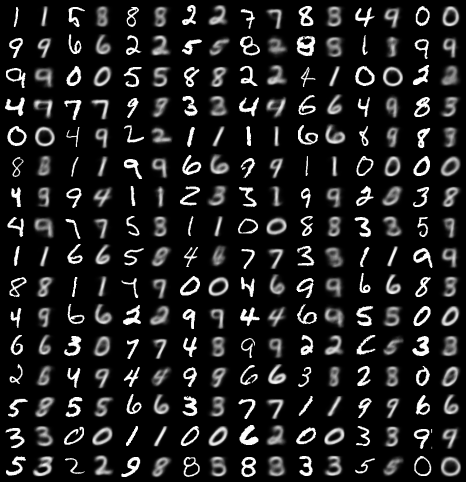 1 1 5 8 8 8 2 2 7 7 8 8 4 9 0 0
9 9 6 6 2 2 5 5 8 2 8 8 1 8 9 9
9 9 0 0 5 5 8 8 2 2 4 1 0 0 2 2
4 9 7 7 9 9 3 3 4 4 6 6 4 9 8 3
0 0 4 9 2 2 1 1 1 1 6 6 8 9 8 3
8 8 1 1 9 9 6 6 9 9 1 1 0 0 0 0
4 9 9 4 1 1 2 3 3 1 9 9 2 0 3 8
4 9 7 7 5 3 1 1 0 0 8 8 3 3 5 9
1 1 6 6 5 8 4 4 7 7 3 3 1 1 9 9
8 8 1 1 7 9 0 0 4 6 9 9 6 6 8 3
4 9 6 6 2 2 9 9 4 4 6 9 5 5 0 0
6 6 3 0 7 7 4 8 9 9 2 2 5 3 3
2 6 4 9 4 4 9 9 6 6 3 8 2 8 0 0
5 8 5 5 6 6 3 3 7 7 1 1 9 9 6 6
3 3 0 0 1 1 0 0 6 2 0 0 3 3 9 9
5 3 2 2 9 8 8 3 8 3 3 3 5 5 0 0